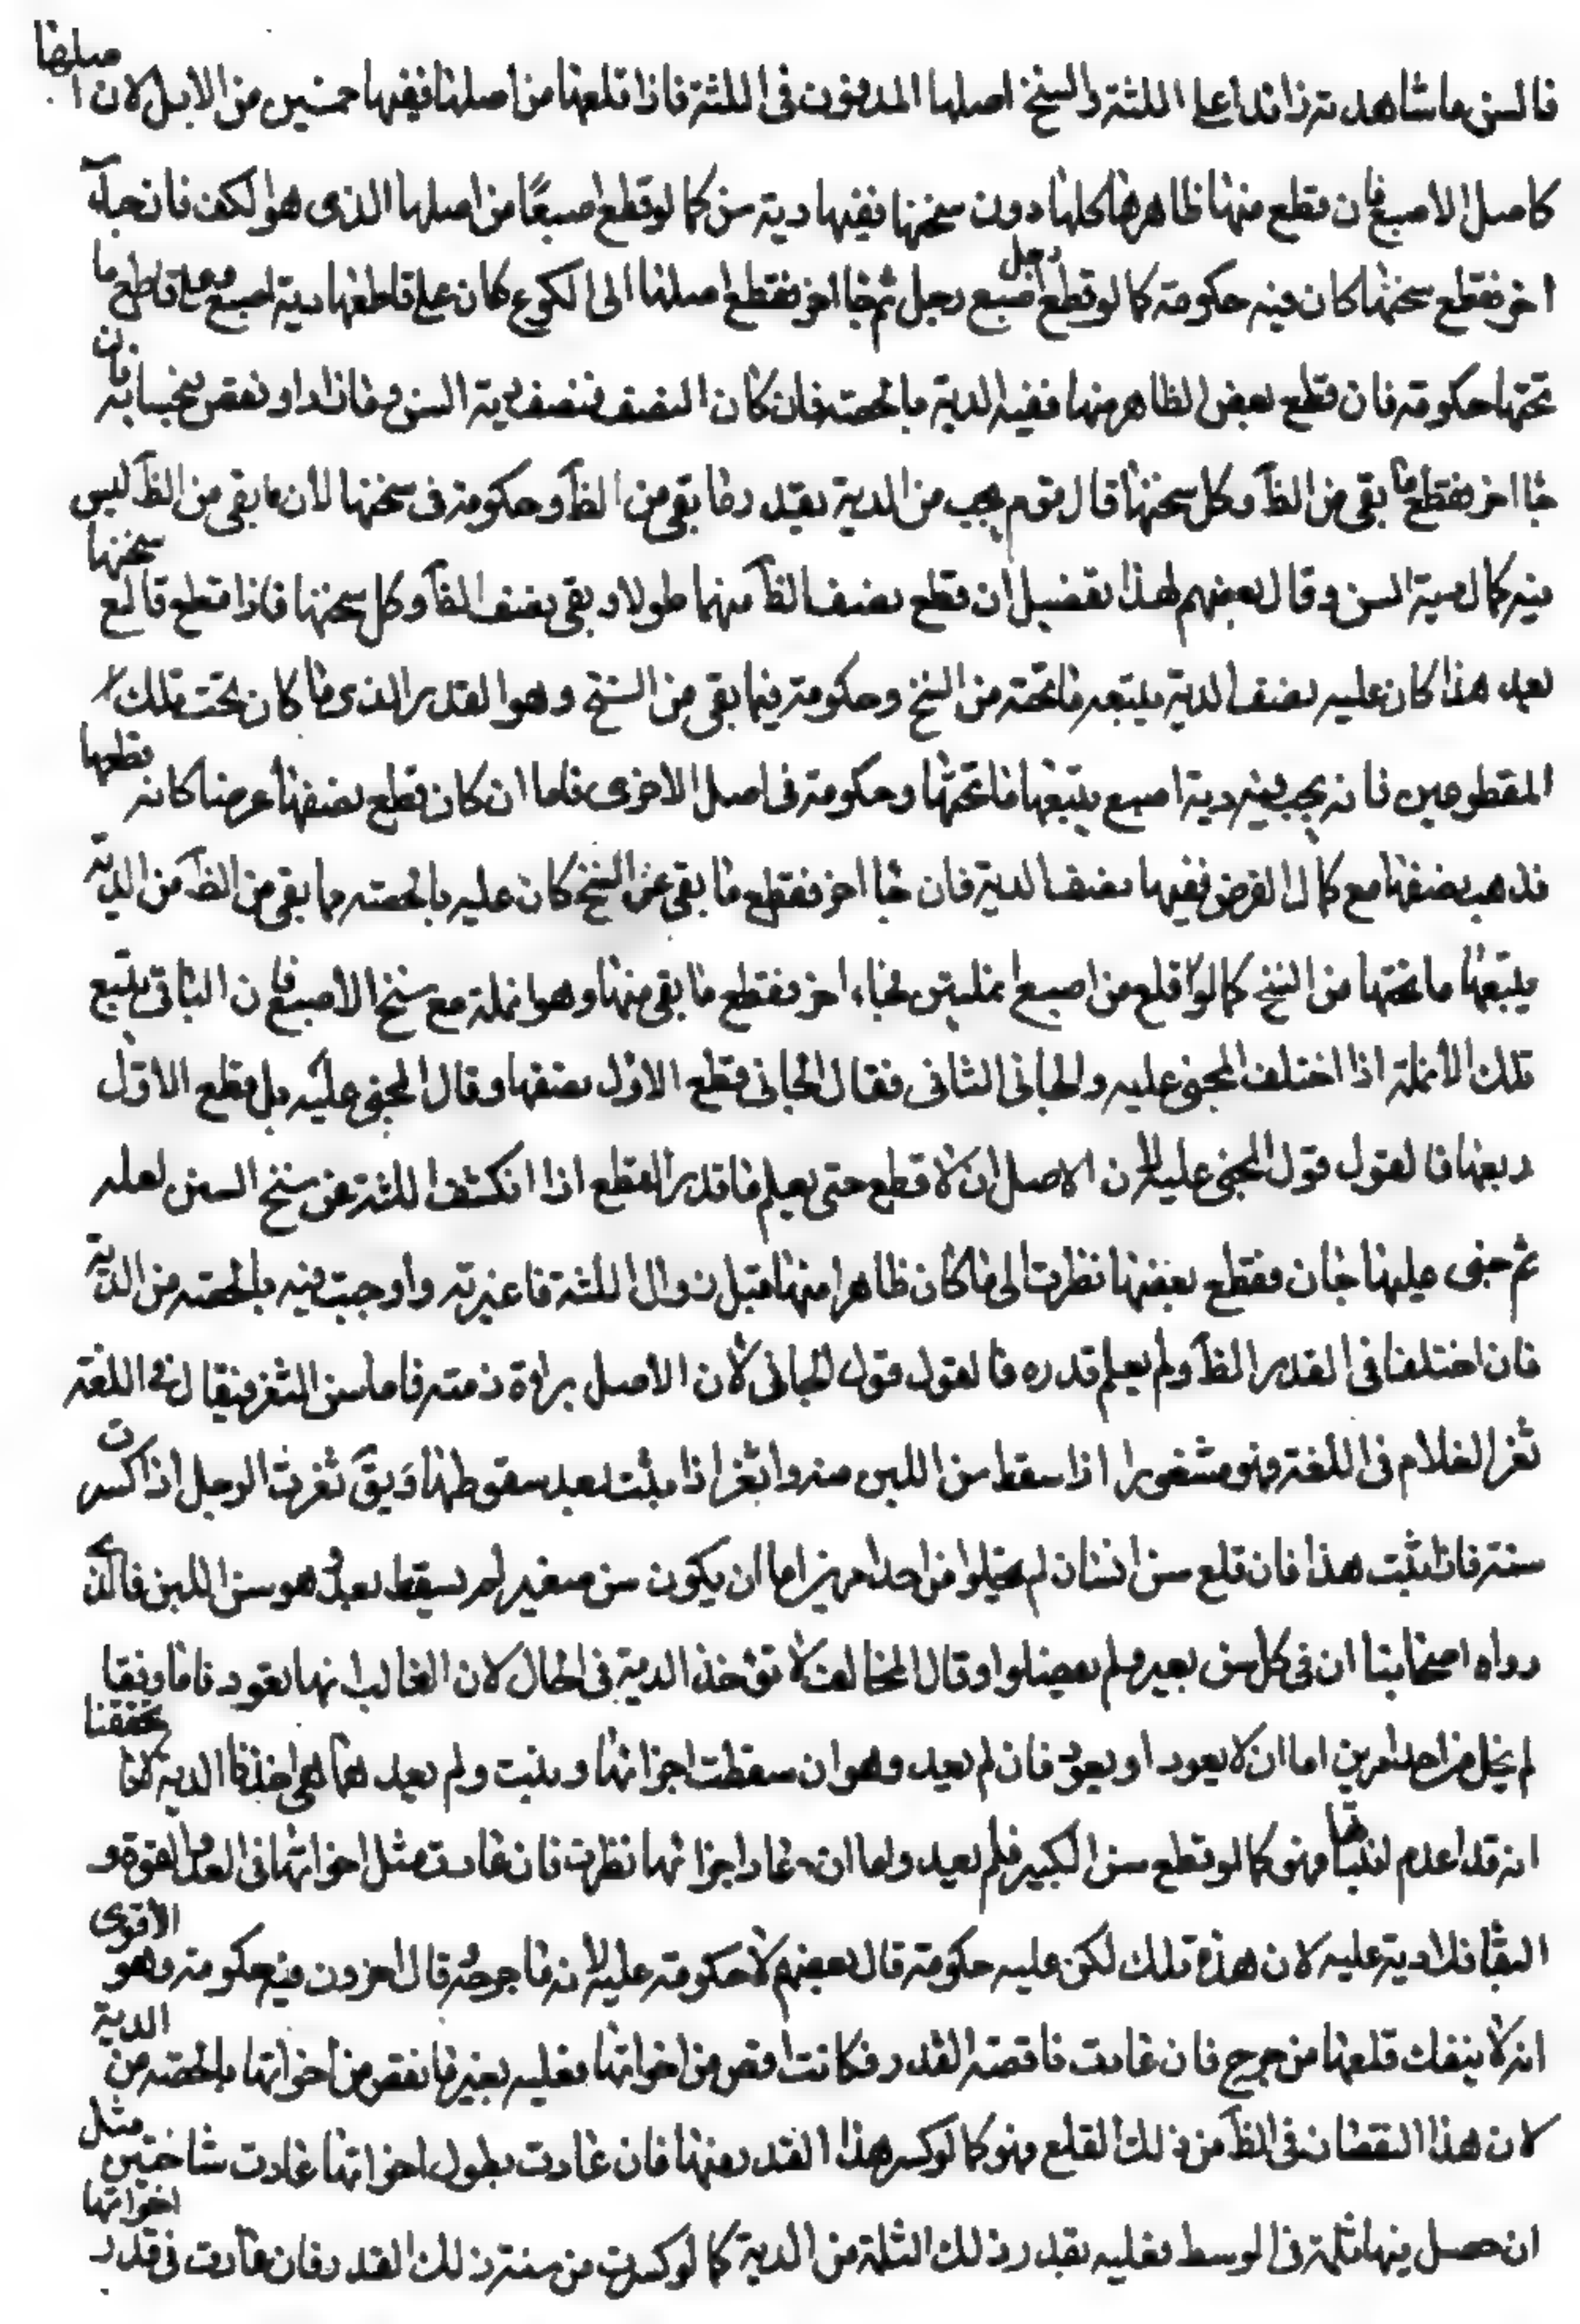 فالسن ما شاهدته زائدا على اللثة والسنخ اصلها المدفون فى اللثة فاذا قلعها من اصلها ففيها خمسين من الابل لان اصلها
كاصل الاصبع فان قطع منها ظاهرها كلها دون سنخها ففيها دية سن كما لو قطع اصبعًا من اصلها الذى هو الكف فان جاۤء
اخر فقطع سنخها كان فيه حكومة كما لو قطع رجل اصبع رجل ثم جا اخر فقطع اصلها الى الكوع كان على قاطعها دية اصبع وعلى قاطع ما
تحتها حكومة فان قطع بعض الظاهر منها ففيه الدية بالحصة فان كان النصف فنصف دية السن وما زاد او نقص بحسابه فان
جا اخر فقطع ما بقى من الظۤ وكل سنخها قال قوم يجب من الدية بقدر ما بقى من الظۤ وحكومة فى سخنها لان ما بقى من الظۤ ليس
فيه كمال دية السن وقال بعضهم لهذا تفصيل ان قطع نصف الظۤ منها طولا وبقى نصف الظۤ وكل سخنها فاذا قطع قالع سخنها
بعد هذا كان عليه نصف الدية يتبعه ما تحته من السنخ وحكومة فيما بقى من السنخ وهو القدر الذى ما كان تحت تلك
المقطوعين فانه يجب فيه دية اصبع يتبعها ما تحتها وحكومة فى اصل الاخرى فاما ان كان قطع نصفها عرضا كانه قطعها
فذهب نصفها مع كمال العرض ففيها نصف الدية فان جا اخر فقطع ما بقى من السنخ كان عليه بالحصة مما بقى من الظۤ من الدية
يتبعها ما تحتها من السنخ كما لو اقلع من اصبع انملتين فجاء اخر فقطع ما بقى منها وهو انملة مع سنخ الاصبع فان الباقى يتبع
تلك الأنملة اذا اختلف المجنى عليه والجانى الثانى فقال الجانى قطع الاول نصفها وقال المجنى عليه بل قطع الاوّل
ربعها فالقول قول المجنى عليه لان الاصل ان لا قطع حتى يعلم ما قدر القطع اذا انكشف اللثة عن سنخ السن لعله
ثم جنى عليها جان فقطع بعضها نظرت الى ما كان ظاهرا منها قبل زوال اللثة فاعتبرته واوجبت فيه بالحصة من الدية
فان اختلفا فى القدر الظۤ ولم يعلم قدره فالقول قول الجانى لان الاصل براءة ذمته فاما سن الثغر فيقال فى اللغة
ثغر الغلام فى اللغة وهو مثغور اذا سقط سن اللبن منه واثغر اذا نبتت بعد سقوطها ويقۤ ثغرت الرجل اذا كسرت
سنه فاذا ثبت هذا فان قلع سن انسان لم يخلوا من احد امرين اما ان يكون سن صغير لم يسقط بعد هو سن اللبن فالذى
رواه اصحابنا ان فى كل سن بعير ولم يفصلوا وقال المخالف لا تؤخذ الدية فى الحال لان الغالب انها تعود فاما وفقا
لم يخل من احد امرين اما ان لا يعود او يعود فان لم يعد وهو ان سقطت اخواتها ونبتت ولم يعد هاهى اخذنا الدية لانا تحققنا
انه قد اعدم انباتها وهو كما لو قطع سن الكبير فلم يعد واما ان عاد اخواتها نظرت فان عادت مثل اخواتها فى القد والقوة و
البقا فلا دية عليه لان هذه تلك لكن عليه حكومة قال بعضهم لا حكومة عليه لانه ما جرحه قال اخرون فيه حكومة وهو الأقوى
انه لا ينفك قلعها من جرح فان عادت ناقصة القدر فكانت اقص من اخواتها فعليه بغير ما نقص من اخواتها بالحصة من الدية
لان هذا النقصان فى الظۤ من ذلك القلع وهو كما لو كسر هذا القدر منها فان عادت بطول اخواتها عادت شاختين مثل
ان حصل فيها ثلمة فى الوسط فعليه بقدر ذلك الثلمة من الدية كما لو كسرت من سنه ذلك القدر فان عادت فى قدر اخواتها